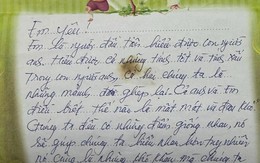 Em yêu...
Em là người đầu tiên hiểu được con người
anh. Hiểu được cả những thứ tốt và thứ xấu
Trong con người anh. Cả hai chúng ta là
những mảnh được ghép lại. Cả anh và em
đều biết thế nào là mất mát và đau khổ
Chúng ta đều có những điểm giống nhau, nó
sẽ giúp chúng ta hiểu nhau hơn. Tuy nhiên
nó cũng là những khó khăn mà chúng ta